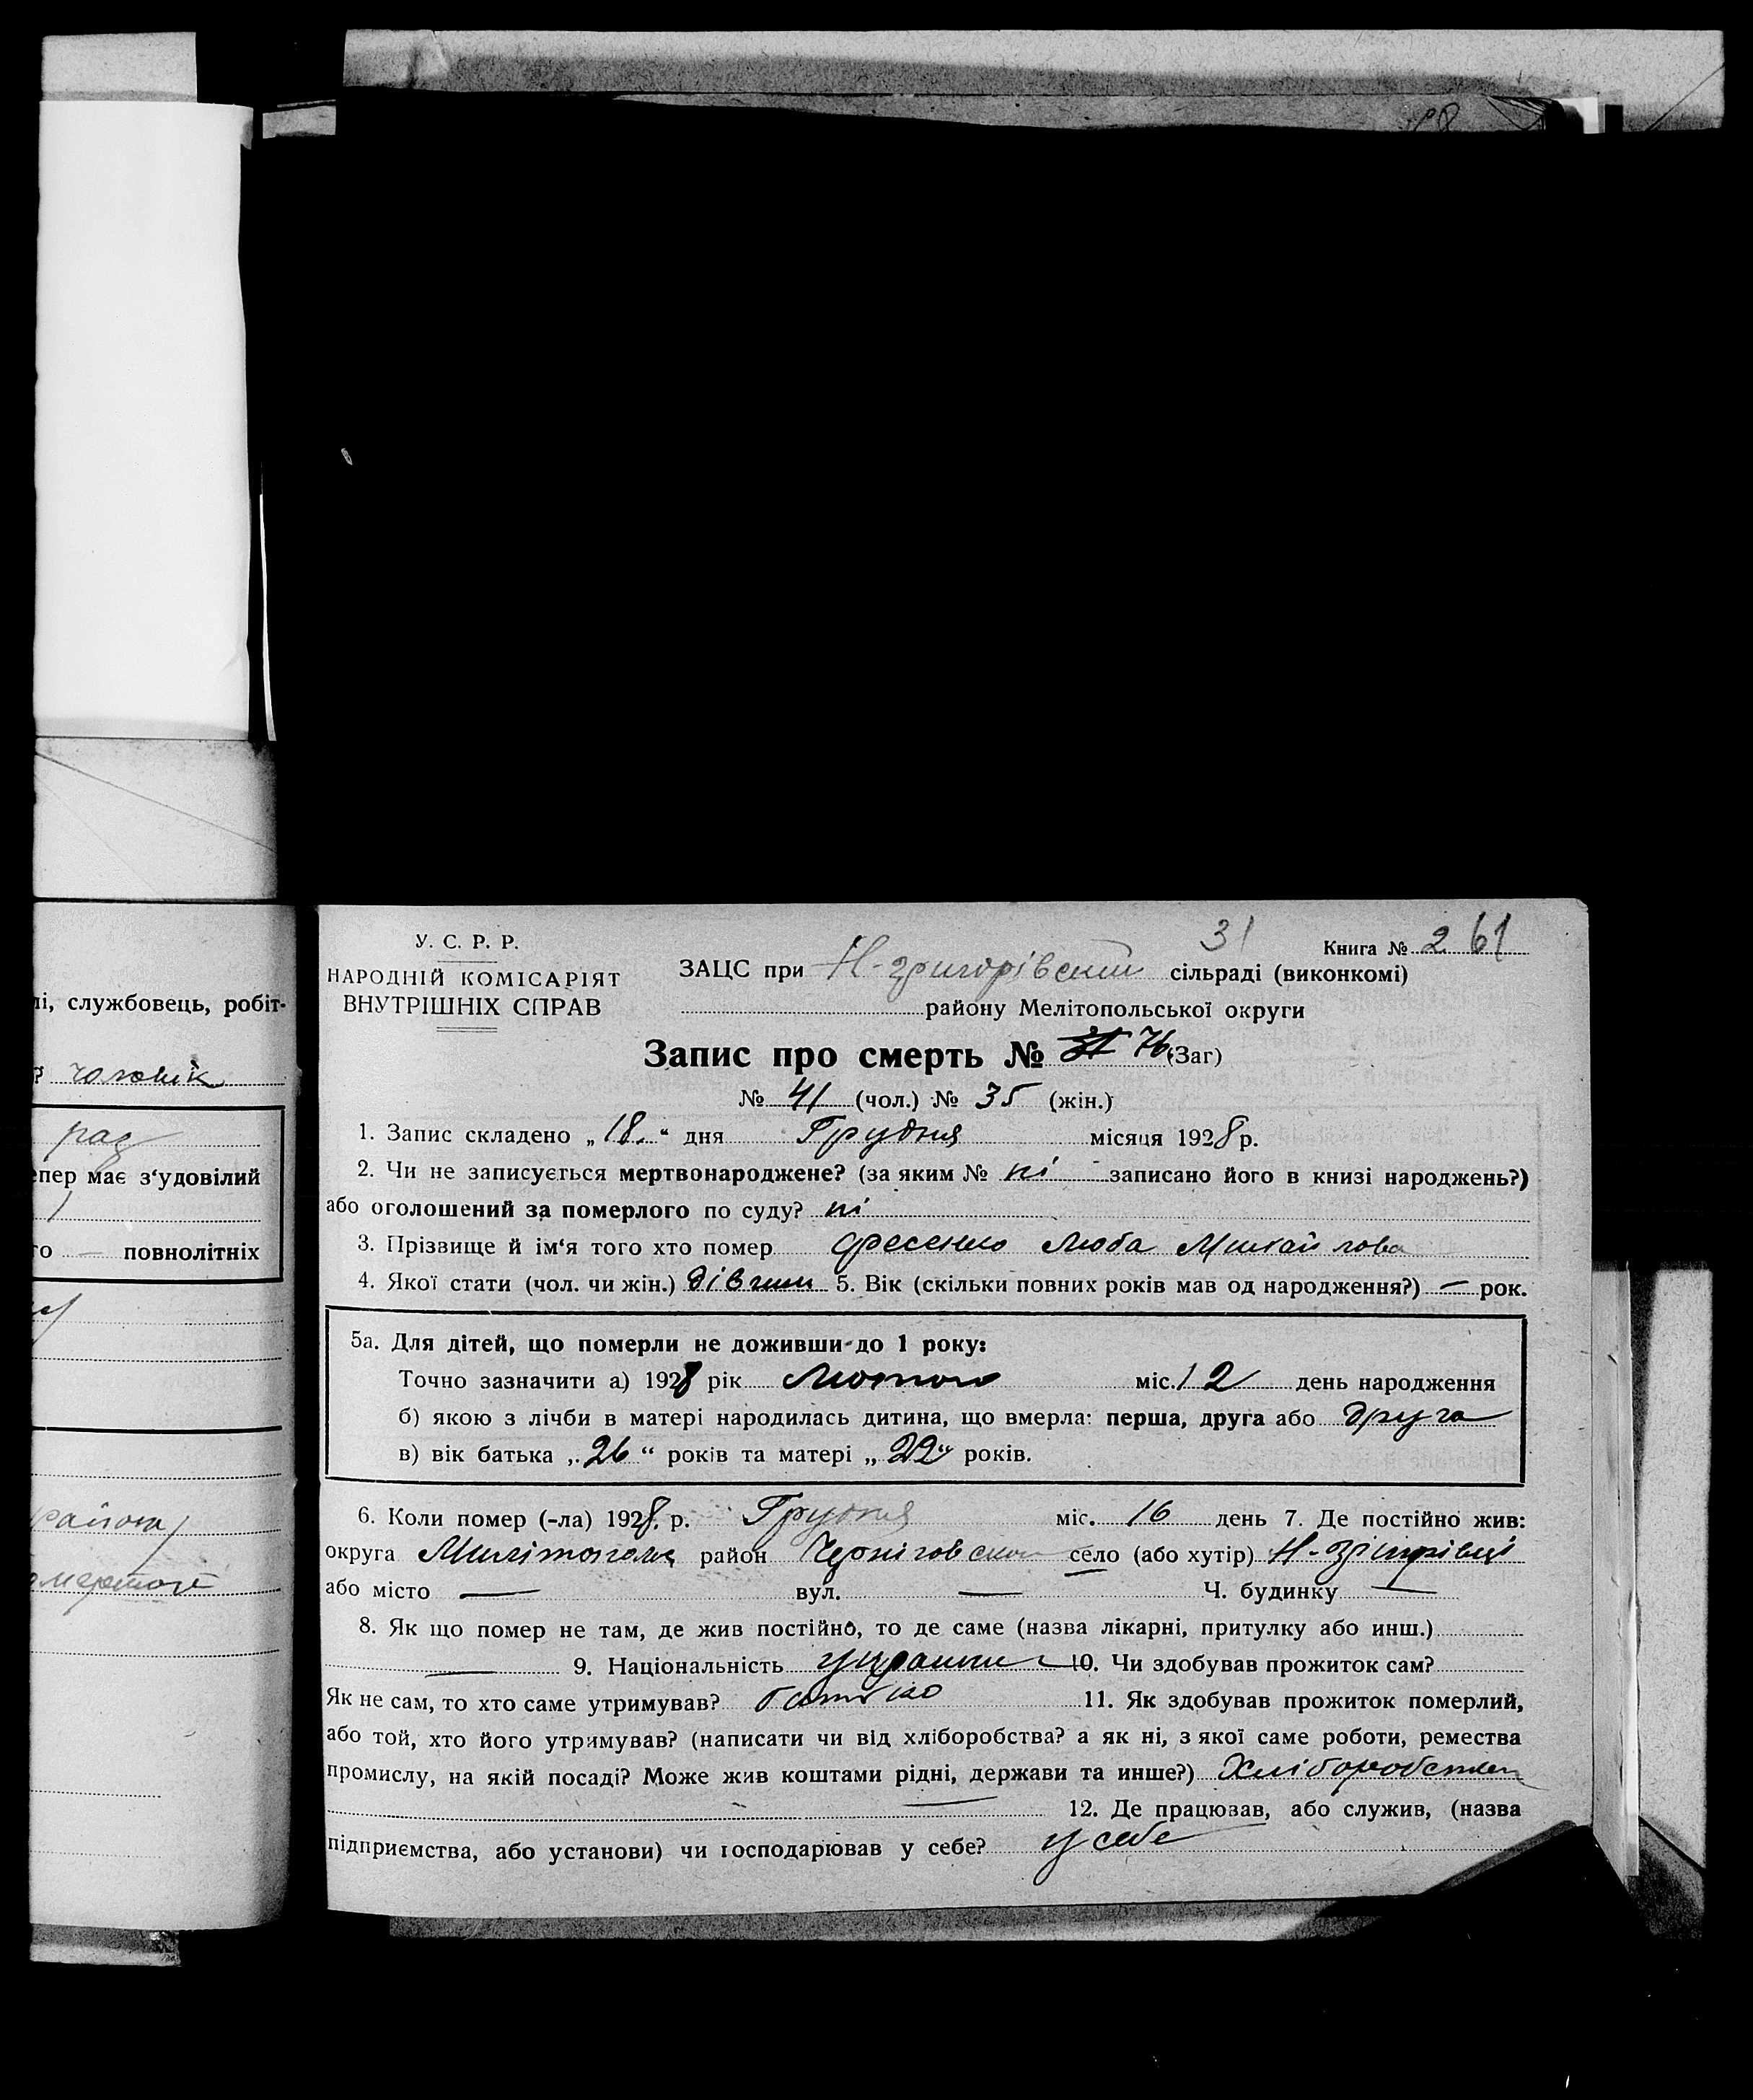 лі, службовець, робіт-
? чоловік
рад
епер має з‘удовілий
1
го — повнолітніх
района
У. С. Р. Р.
НАРОДНІЙ КОМІСАРІЯТ
ВНУТРІШНІХ СПРАВ
31
Книга № 2 61
ЗАЦС при Н-григорівский сільраді (виконкомі)
району Мелітопольської округи
Запис про смерть № 31 76 (Заг)
№ 41 (чол.) № 35 (жін.)
1. Запис складено „18.“ дня Грудня місяця 1928 р.
2. Чи не записується мертвонароджене? (за яким № ні записано його в книзі народжень?)
або оголошений за померлого по суду? ні
3. Прізвище й ім‘я того хто помер Фесенко Люба Михайлова
4. Якої стати (чол. чи жін.) дівчина 5. Вік (скільки повних років мав од народження?) — рок.
5а. Для дітей, що померли не доживши до 1 року:
Точно зазначити а) 1928 рік Лютого міс. 12 день народження
б) якою з лічби в матері народилась дитина, що вмерла: перша, друга або друга
в) вік батька „26“ років та матері „22“ років.
6. Коли помер (-ла) 1928. р. Грудня міс. 16 день 7. Де постійно жив:
округа район Черніговском село (або хутір)
або місто — вул. — Ч. будинку —
8. Як що помер не там, де жив постійно, то де саме (назва лікарні, притулку або инш.)
— 9. Національність 10. Чи здобував прожиток сам?
Як не сам, то хто саме утримував? батько 11. Як здобував прожиток померлий,
або той, хто його утримував? (написати чи від хліборобства? а як ні, з якої саме роботи, ремества
промислу, на якій посаді? Може жив коштами рідні, держави та инше?) Хліборобство
— 12. Де працював, або служив, (назва
підприємства, або установи) чи господарював у себе? у себе